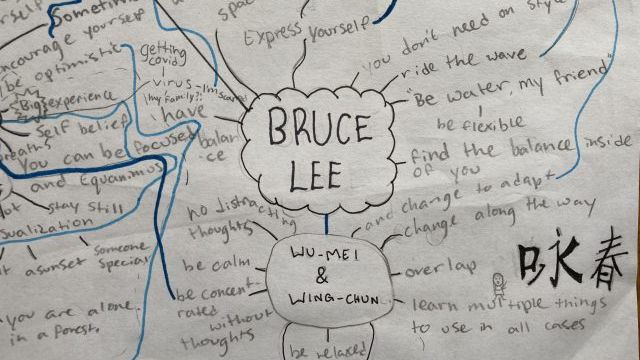 Sometim
space
Express yourself
you don't need on style
ride the wave
"Be water, my friend"
be flexible
encourage yourself
be optimistic
getting
covid
virus
I'm scared
my family?!
Big experience
self belief
have
balan
ce
You can be focused
and Equanimus
stay still
sualization
a sunset
someone
special
you are alone
in a forest
BRUCE
LEE
find the balance inside
of you
and change to adapt
change along the way
no distracting
thoughts
be calm
be concent-
rated
without
thoughts
WU-MEI
&
WING-CHUN
overlap
learn multiple things
to use in all cases
be relaxed
咏春